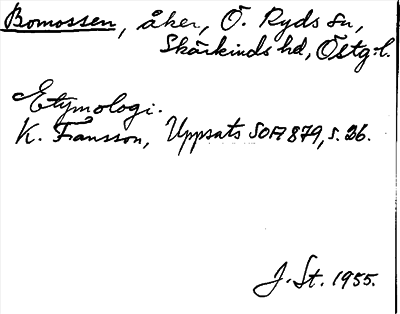 Bomossen, åker, Ö. Ryds sn,
Skärkinds hd, Östg.l.
Etymologi.
K. Fransson, Uppsats SOA 879, s. 26.
J. St. 1955.